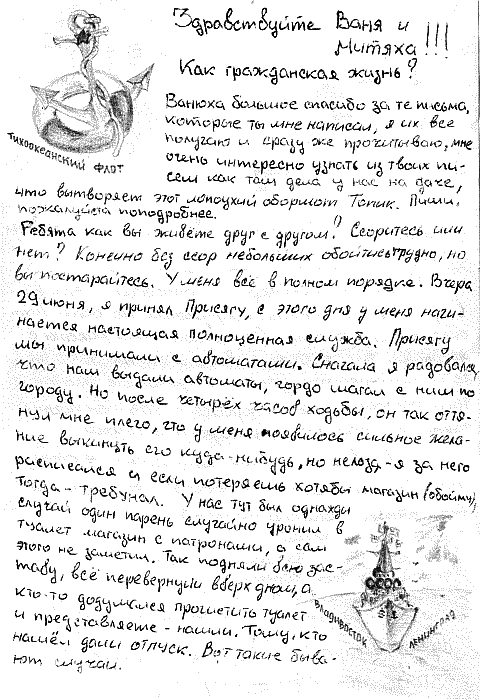 Здравствуйте Ваня и
Митяха!!!
Как гражданская жизнь?
Ванюха большое спасибо за те письма,
которые ты мне написал, я их все
получаю и сразу же прочитываю, мне
очень интересно узнать из твоих пи-
сем как там дела у нас на даче,
что вытворяет этот лопоухий обормот Топик. Пиши,
пожалуйста поподробнее.
Ребята как вы живёте друг с другом? Ссоритесь или
нет? Конечно без ссор небольших обойтись трудно, но
вы постарайтесь. У меня всё в полном порядке. Вчера
29 июня, я принял Присягу, с этого дня у меня начи-
нается настоящая полноценная служба. Присягу
мы принимали с автоматами. Сначала я радовался,
что нам выдали автоматы, гордо шагал с ним по
городу. Но после четырёх часов ходьбы, он так оттян-
нул мне плечо, что у меня появилось сильное жела-
ние выкинуть его куда-нибудь, но нельзя-я за него
расписался и если потеряешь хотябы магазин (обойму),
тогда - требунал. У нас тут был однажды
случай один парень случайно уронил в
туалет магазин с патронами, а сам
этого не заметил. Так подняли всю зас-
таву, всё перевернули вверх дном, а
кто-то додумался прочистить туалет
и представляете - нашли. Тому, кто
нашёл дали отпуск. Вот такие быва-
ют случаи.
ТИХООКЕАНСКИЙ ФЛОТ
ВЛАДИВОСТОК
ЛЕНИНГРАД